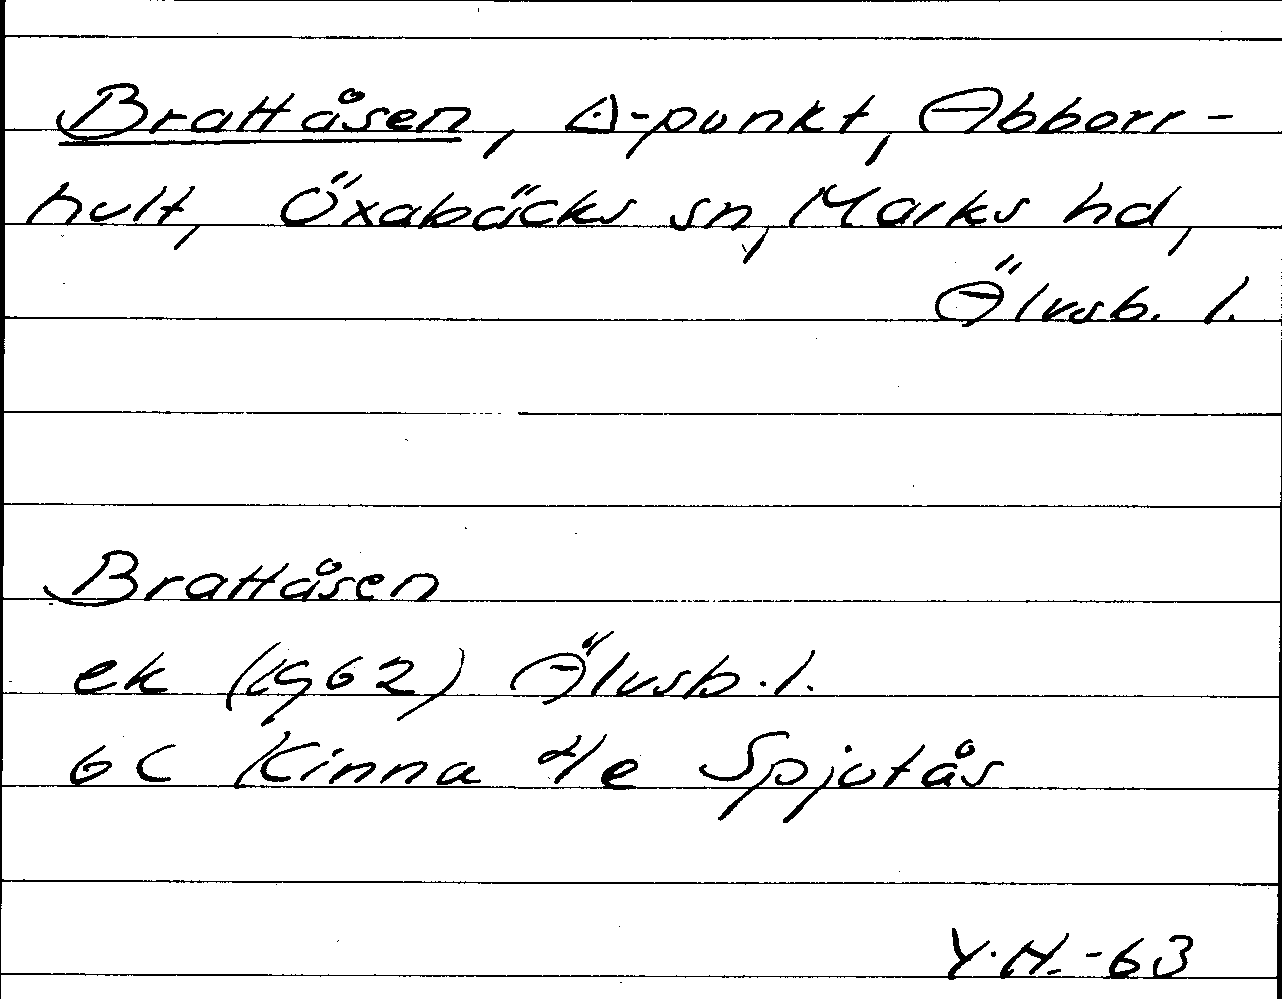 Brattåsen, Δ-punkt, Abborr-
hult, Öxabäcks sn, Marks hd,
Älvsb. l.
Brattåsen
ek (1962) Älvsb. l.
6C Kinna 4e Spjutås
Y.H.-63